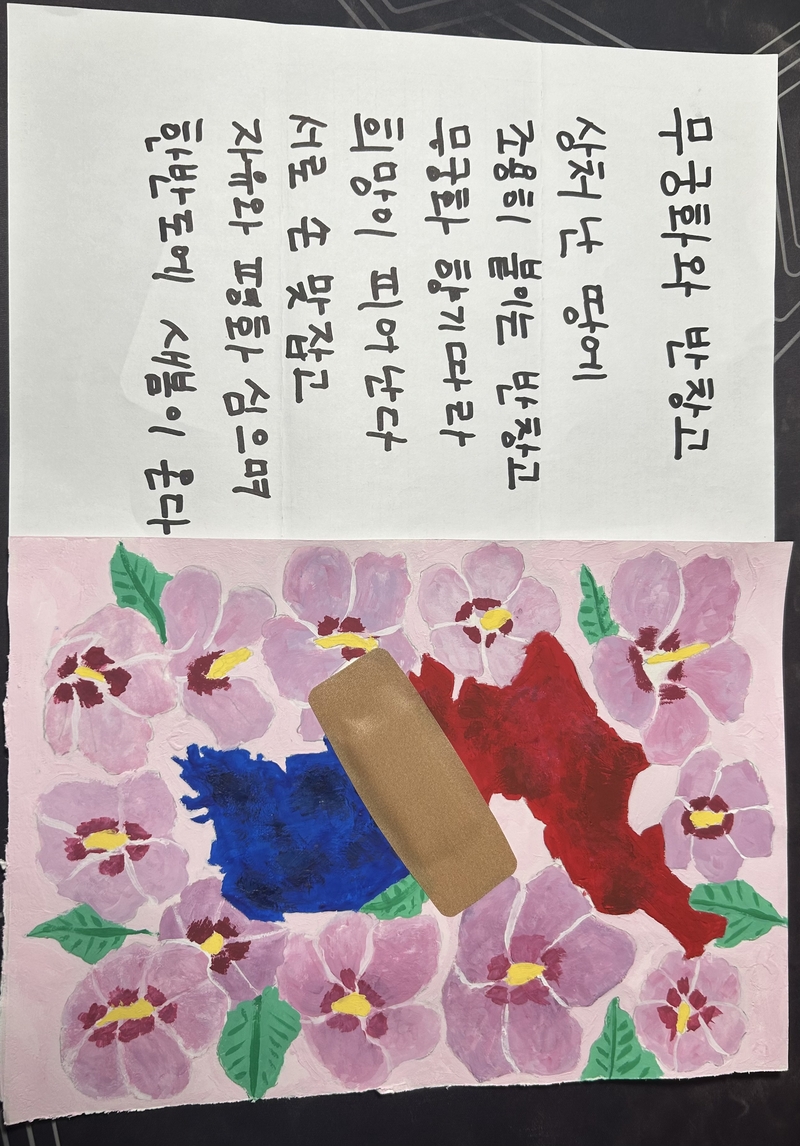 무궁화와 반창고
상처 난 땅에
조용히 붙이는 반창고
무궁화 향기따라
희망이 피어난다
서로 손 맞잡고
자유와 평화 심으며
한반도에 새봄이 온다